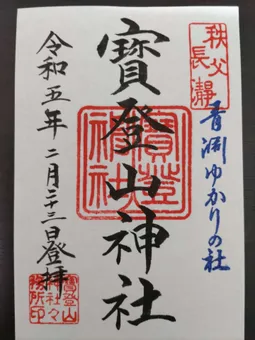 秩父
長瀞
青淵ゆかりの社
寳登山神社
寳登
山神
社
令和五年二月二十三日登拝
寳登山
神社々
務所印